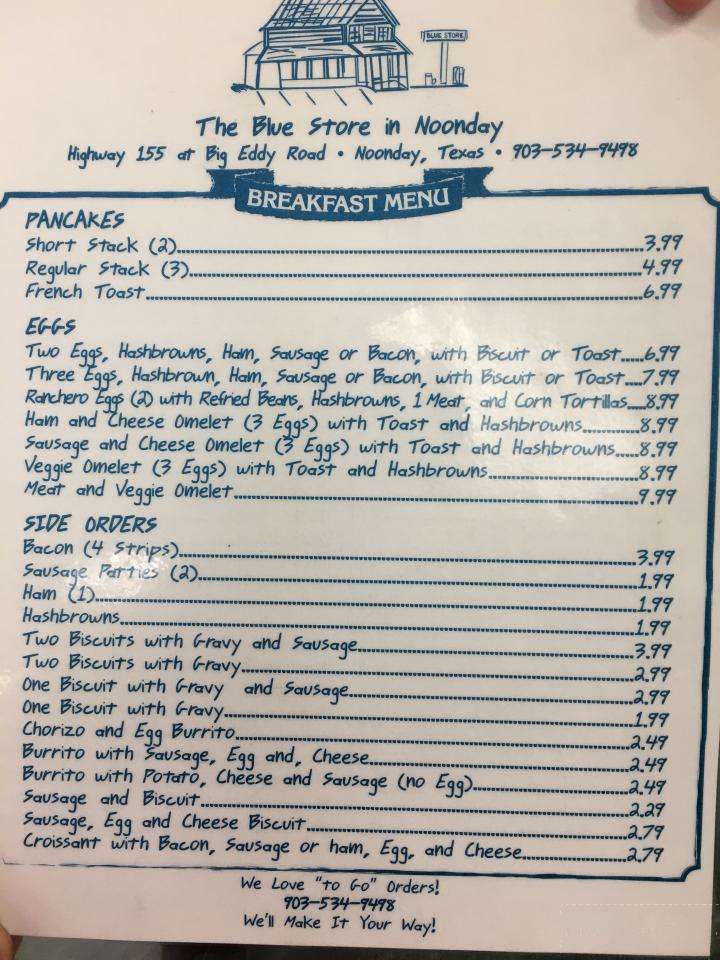 BLUE STORE
The Blue Store in Noonday
Highway 155 at Big Eddy Road • Noonday, Texas • 903-534-9498
BREAKFAST MENU
PANCAKES
Short Stack (2)......3.99
Regular Stack (3)......4.99
French Toast......6.99
EGGS
Two Eggs, Hashbrowns, Ham, Sausage or Bacon, with Biscuit or Toast......6.99
Three Eggs, Hashbrown, Ham, Sausage or Bacon, with Biscuit or Toast......7.99
Ranchero Eggs (2) with Refried Beans, Hashbrowns, 1 Meat, and Corn Tortillas......8.99
Ham and Cheese Omelet (3 Eggs) with Toast and Hashbrowns......8.99
Sausage and Cheese Omelet (3 Eggs) with Toast and Hashbrowns......8.99
Veggie Omelet (3 Eggs) with Toast and Hashbrowns......8.99
Meat and Veggie Omelet......9.99
SIDE ORDERS
Bacon (4 Strips)......3.99
Sausage Patties (2)......1.99
Ham (1)......1.99
Hashbrowns......1.99
Two Biscuits with Gravy and Sausage......3.99
Two Biscuits with Gravy......2.99
One Biscuit with Gravy and Sausage......2.99
One Biscuit with Gravy......1.99
Chorizo and Egg Burrito......2.49
Burrito with Sausage, Egg and, Cheese......2.49
Burrito with Potato, Cheese and Sausage (no Egg)......2.49
Sausage and Biscuit......2.29
Sausage, Egg and Cheese Biscuit......2.79
Croissant with Bacon, Sausage or ham, Egg, and Cheese......2.79
We Love "to Go" Orders!
903-534-9498
We'll Make It Your Way!